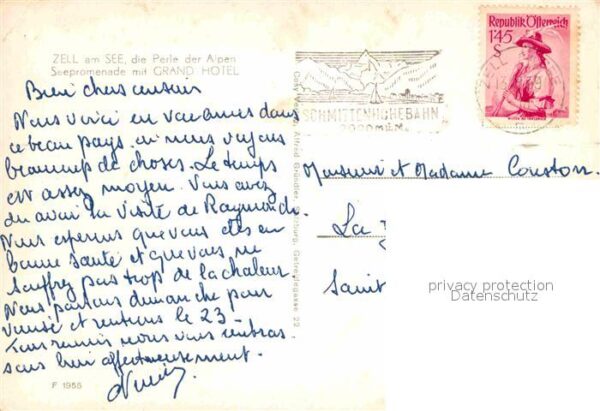 ZELL am SEE, die Perle der Alpen
Seepromenade mit GRAND HOTEL
Bien chers cousins
Nous voici en vacances dans
ce beau pays où nous voyons
beaucoup de choses. Le temps
est assez moyen. Vous avez
dû avoir la visite de Raymonde.
Nous espérons que vous êtes en
bonne santé et que vous ne
souffrez pas trop de la chaleur.
Nous partons dimanche pour
Venise et rentrons le 23 -
Tous réunis nous vous embras-
sons bien affectueusement.
F 1958
Alfred Gründler, Salzburg, Getreidegasse 22
SCHMITTENHÖHEBAHN
2000 M
ZELL
Republik Österreich
1'45
S
Monsieur et Madame
La
Saint
privacy protection
Datenschutz